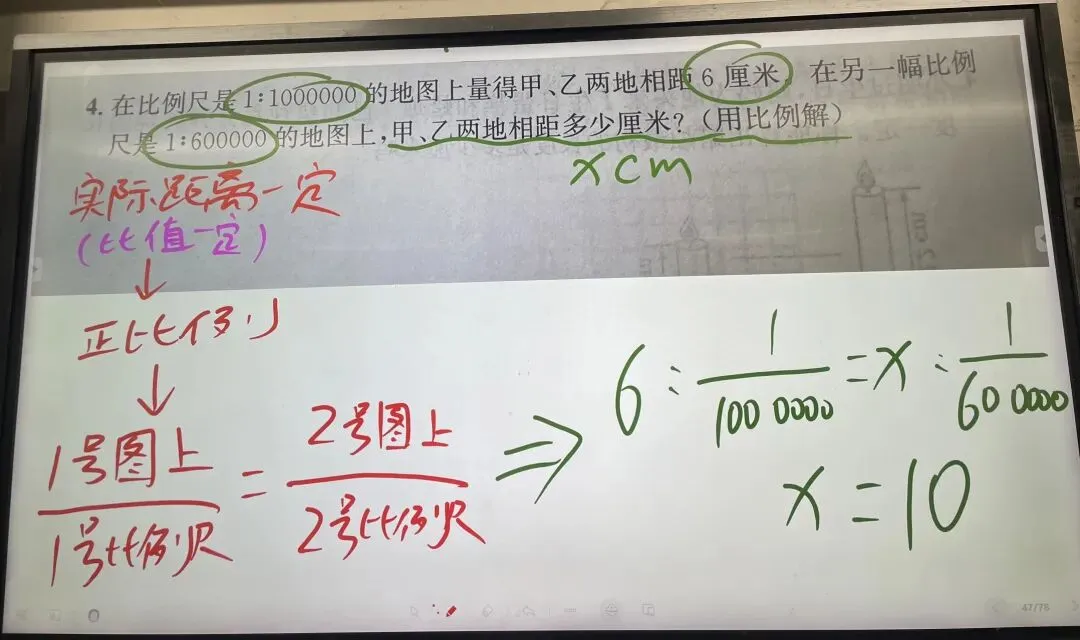 4. 在比例尺是 1:1000000 的地图上量得甲、乙两地相距 6 厘米。在另一幅比例
尺是 1:600000 的地图上,甲、乙两地相距多少厘米?(用比例解)
x cm
实际距离一定
(比值一定)
↓
正比例
↓
1号图上/1号比例尺 = 2号图上/2号比例尺 ⇒ 6 : 1/1000000 = x : 1/600000
x = 10
47/78